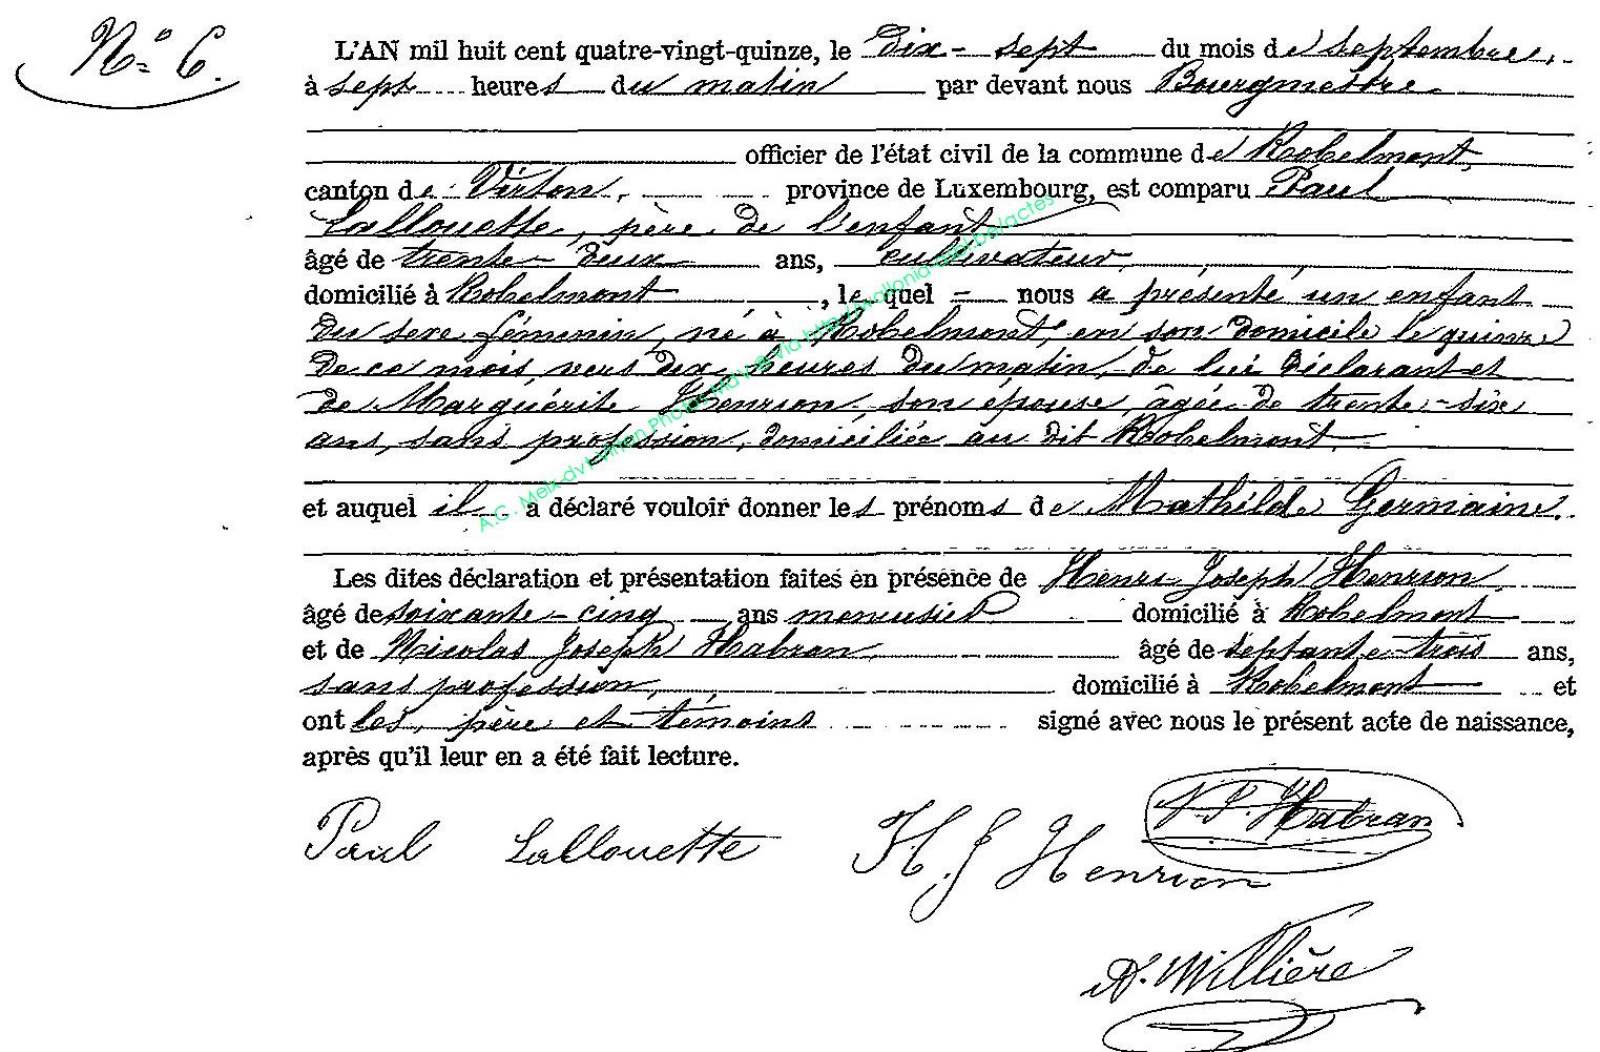 N° 6.
L'AN mil huit cent quatre-vingt-quinze, le dix-sept du mois de septembre,
à sept heures du matin par devant nous Bourgmestre
officier de l'état civil de la commune de Robelmont,
canton de Virton, province de Luxembourg, est comparu Paul
Lallouette, père de l'enfant
âgé de trente-deux ans, cultivateur,
domicilié à Robelmont, le quel nous a présenté un enfant
du sexe féminin, né à Robelmont, en son domicile le quinze
de ce mois, vers dix heures du matin, de lui déclarant et
de Marguérite Henrion, son épouse, âgée de trente-six
ans, sans profession, domiciliée au dit Robelmont,
et auquel il a déclaré vouloir donner les prénoms de Mathilde Germaine.
Les dites déclaration et présentation faites en présence de Henri Joseph Henrion,
âgé de soixante-cinq ans menuisier domicilié à Robelmont
et de Nicolas Joseph Habran, âgé de septante-trois ans,
sans profession, domicilié à Robelmont et
ont les, père et témoins signé avec nous le présent acte de naissance,
après qu'il leur en a été fait lecture.
Paul Lallouette H. J Henrion Habran
Willière
A.G. Meix-dvt-Virton Photos via http://wallonia-